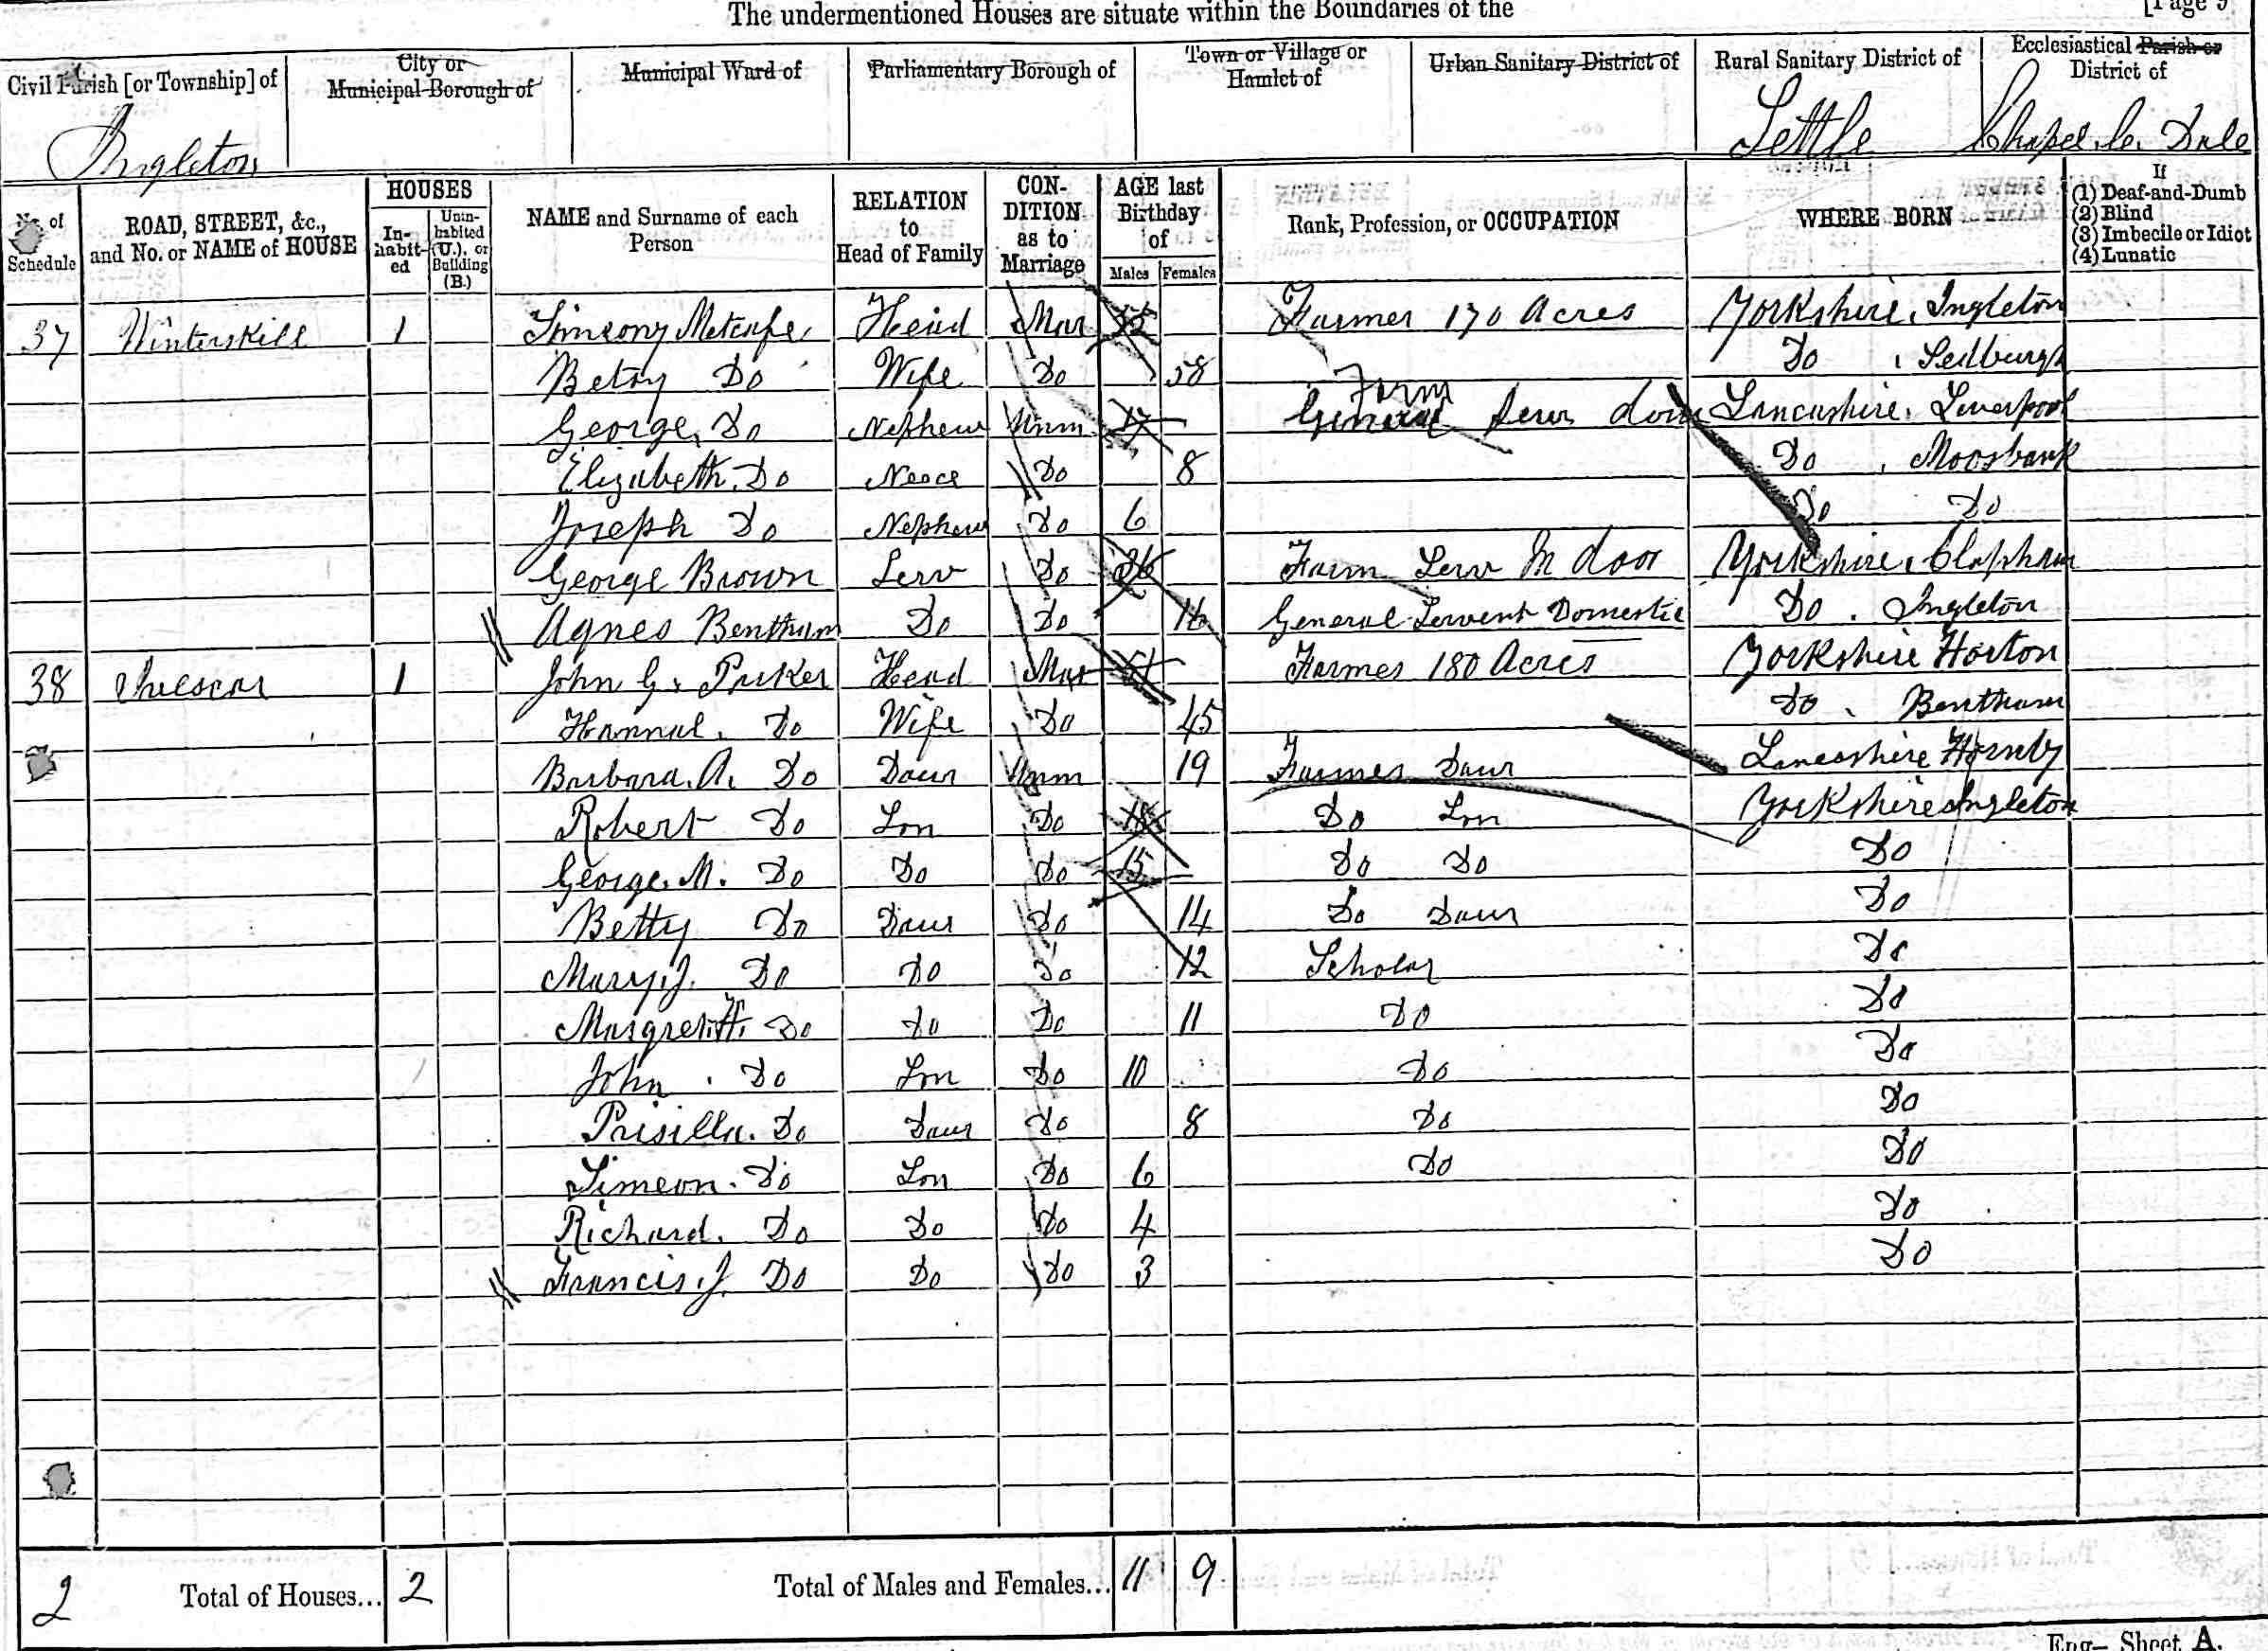 The undermentioned Houses are situate within the Boundaries of the [Page 9
Civil Parish [or Township] of City or Municipal Borough of Municipal Ward of Parliamentary Borough of Town or Village or Hamlet of Urban Sanitary District of Rural Sanitary District of Ecclesiastical Parish or District of
Ingleton Settle Chapel le Dale
No. of Schedule ROAD, STREET, &c., and No. or NAME of HOUSE HOUSES In-habit-ed Unin-habited (U.), or Building (B.) NAME and Surname of each Person RELATION to Head of Family CON-DITION as to Marriage AGE last Birthday of Males Females Rank, Profession, or OCCUPATION WHERE BORN If (1) Deaf-and-Dumb (2) Blind (3) Imbecile or Idiot (4) Lunatic
37 Winterskill 1 Metcalfe Head Mar Farmer 170 Acres Yorkshire, Ingleton
Betsy Do Wife Do 58 Do Sedburgh
George Do Nephew Unm 17 General Farm Serv Lancashire, Liverpool
Elizabeth Do Neece Do 8 Do Moosbank
Joseph Do Nephew Do 6 Do Do
George Brown Serv Do 26 Farm Serv In door Yorkshire, Clapham
Agnes Bentham Do Do 16 General Servent Domestic Do Ingleton
38 1 John G. Parker Head Mar 51 Farmer 180 Acres Yorkshire Horton
Hannah Do Wife Do 45 Do Bentham
Barbara A. Do Daur Unm 19 Farmer Daur Lancashire Hornby
Robert Do Son Do Do Son Yorkshire Ingleton
George M. Do Do Do 15 Do Do Do
Betty Do Daur Do 14 Do Daur Do
Mary J. Do Do Do 12 Scholar Do
Margret H. Do Do Do 11 Do Do
John Do Son Do 10 Do Do
Prisilla Do Daur Do 8 Do Do
Simeon Do Son Do 6 Do Do
Richard Do Do Do 4 Do
Francis J. Do Do Do 3 Do
2 Total of Houses... 2 Total of Males and Females... 11 9
Eng— Sheet A.